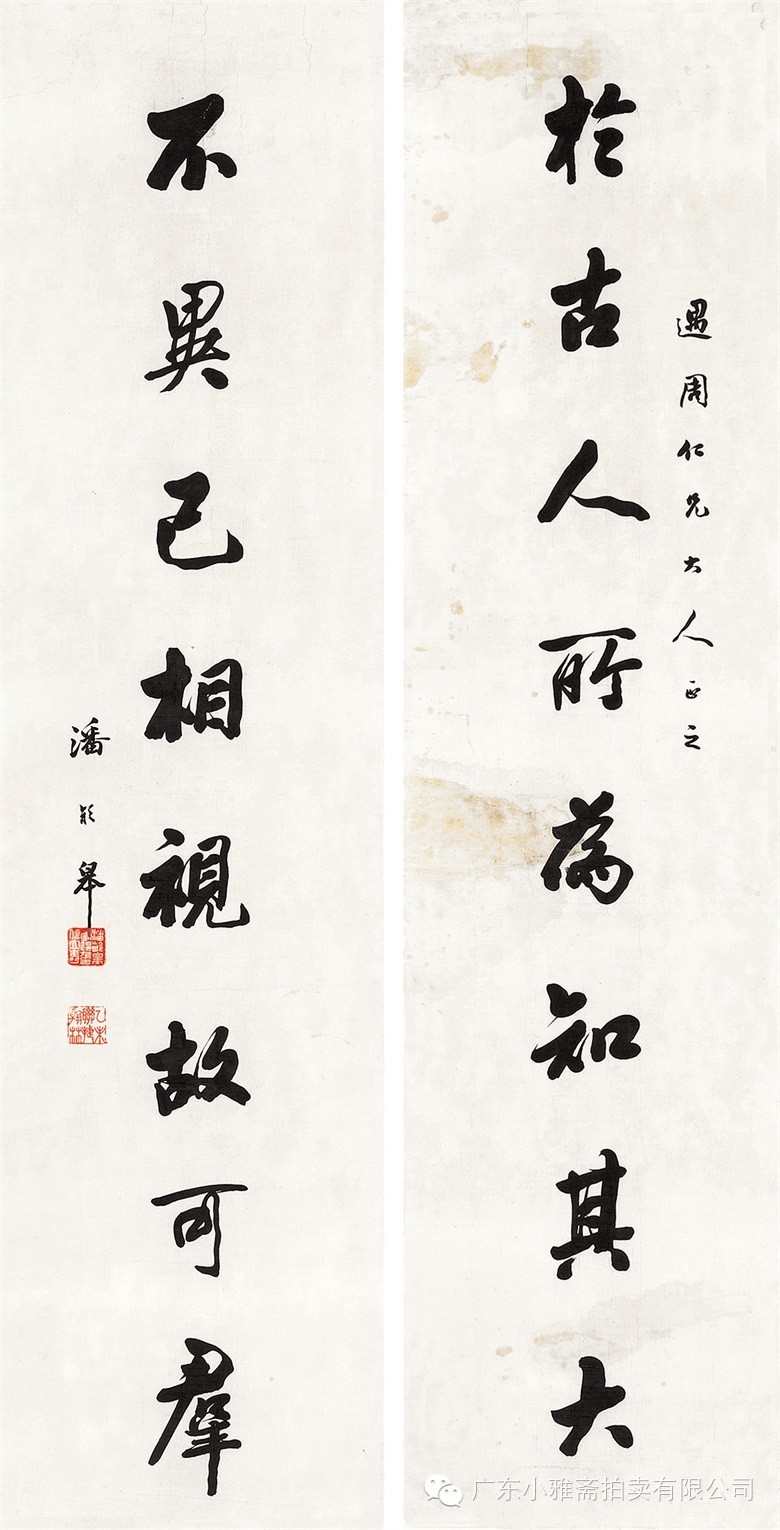 於古人所為知其大
遇周仁兄大人正之
不異己相視故可羣
潘龄皋
乙未聯捷翰林
广东小雅斋拍卖有限公司